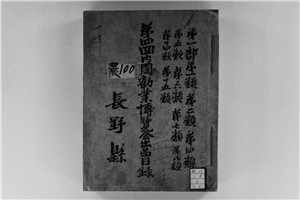 第一部第一類 第二類 第四類
第五類 第六類 第七類 第八類
第十四類 第十五類
第四回内国勧業博覧会出品目録
農100
長野縣